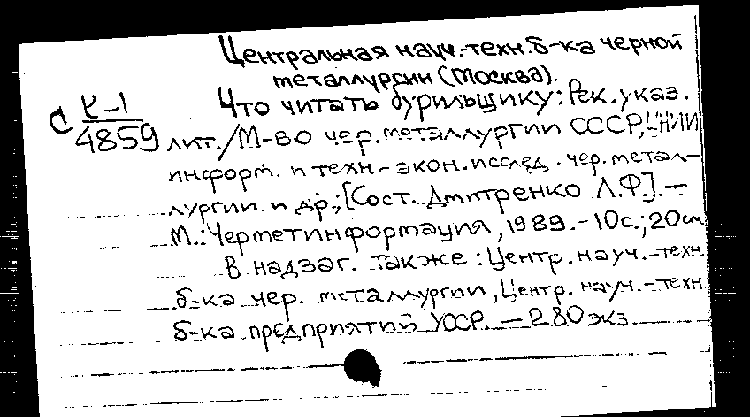 Центральная науч.-техн. б-ка черной
металлургии (Москва).
С К-1
4859
Что читать бурильщику: Рек. указ.
лит. / М-во чер. металлургии СССР, ЦНИИ
информ. и техн.-экон. исслед. чер. метал-
лургии и др.; [Сост. Дмитренко Л.Ф]. —
М.: Черметинформация, 1989. - 10 с.; 20 см
В надзаг. также: Центр. науч.-техн.
б-ка чер. металлургии, Центр. науч.-техн.
б-ка предприятий УССР. — 280 экз.